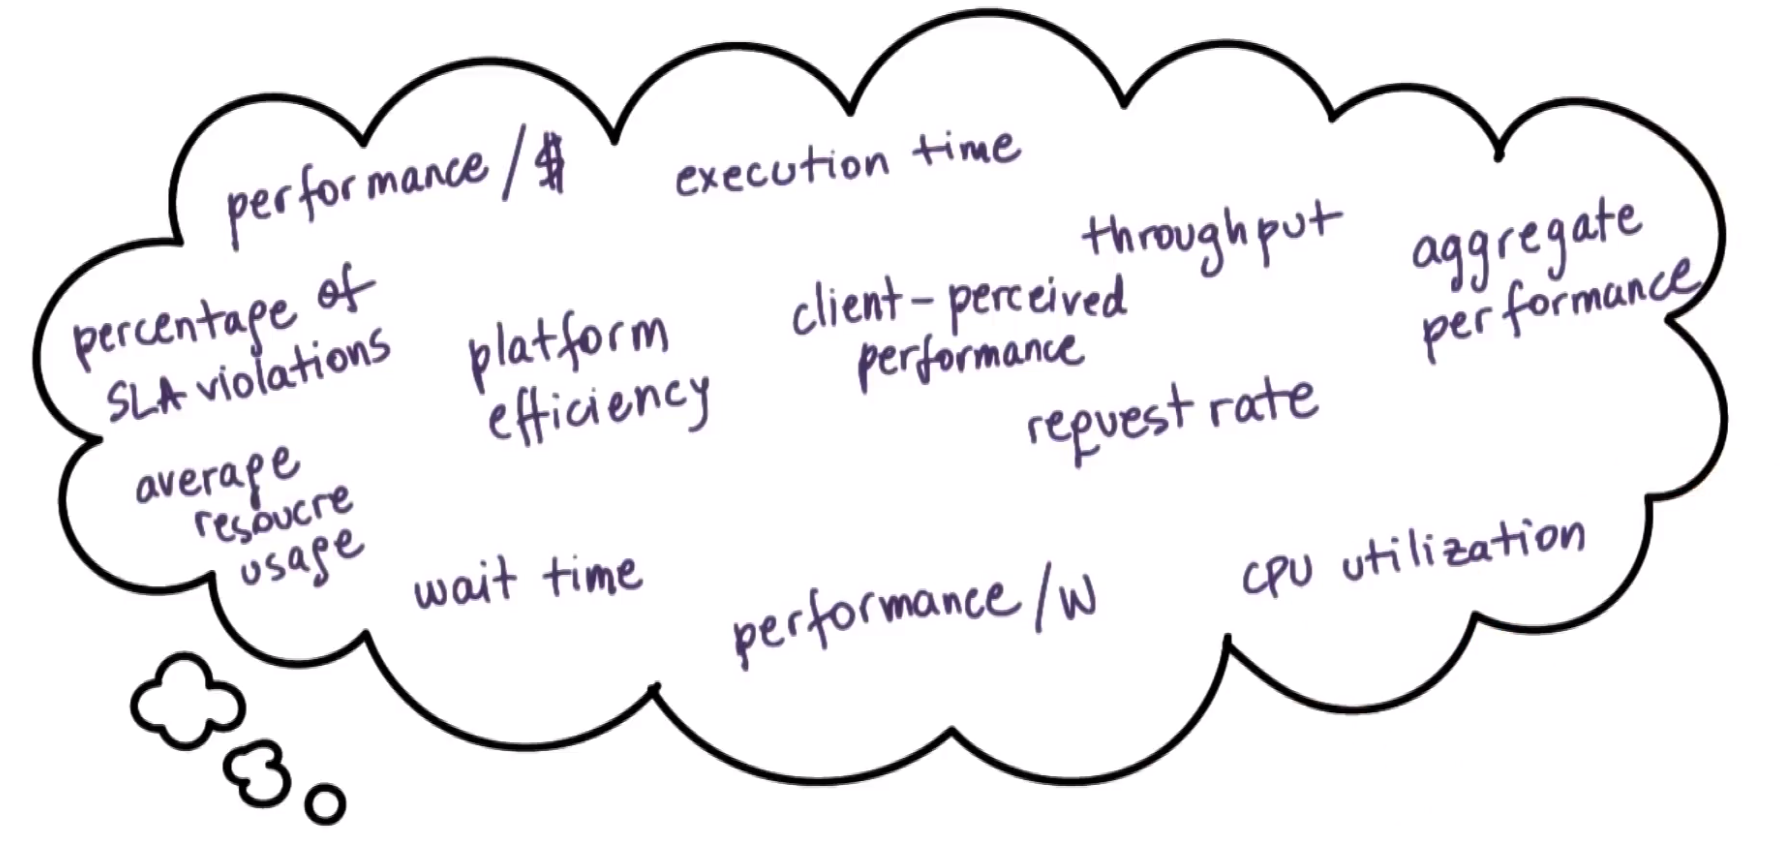 performance/$
execution time
throughput
aggregate
performance
percentage of
SLA violations
platform
efficiency
client-perceived
performance
request rate
average
resoucre
usage
wait time
performance/W
CPU utilization